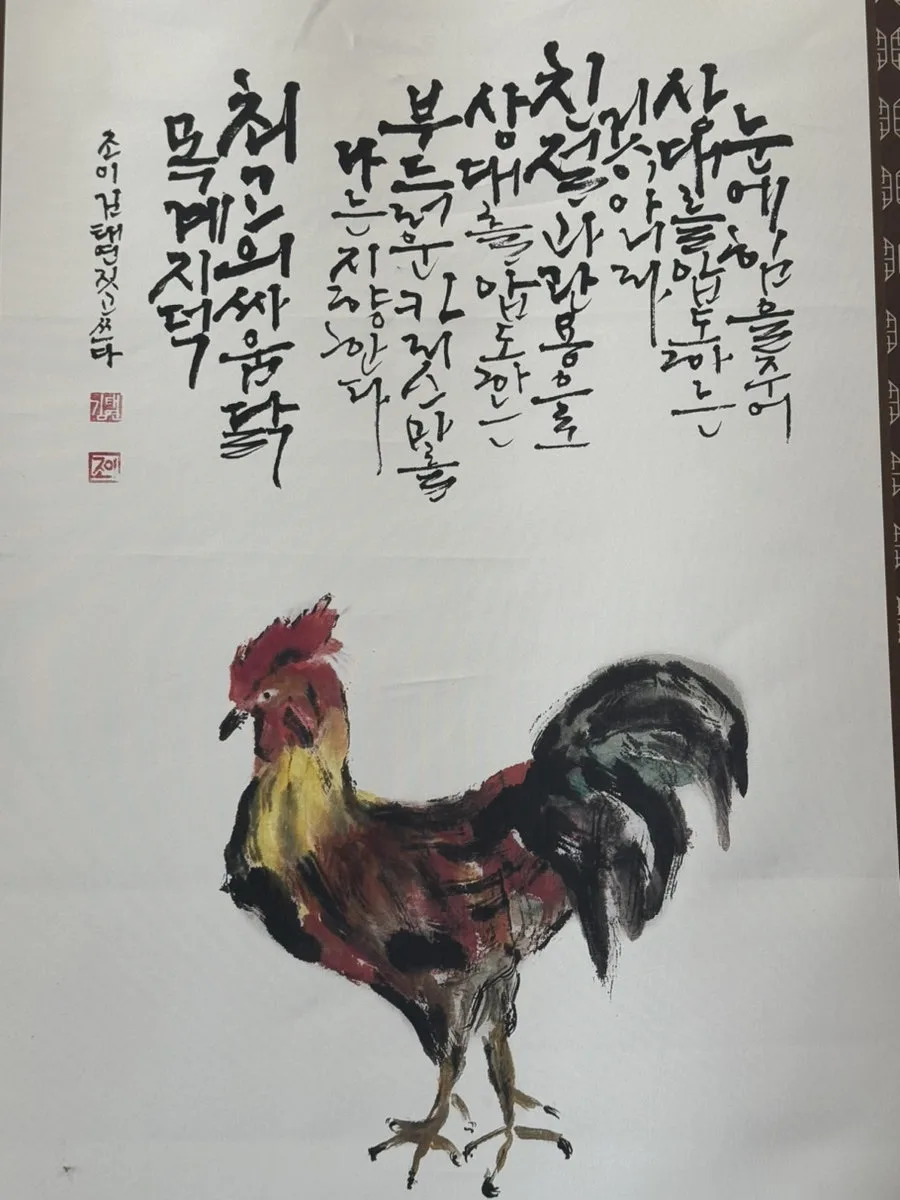 눈에 힘을 주어
상대를 압도하는
것이 아니라
친절과 관용으로
상대를 압도하는
부드러운 카리스마를
나는 지향한다
최고의 싸움닭
목계지덕
조이 김태연 짓고 쓰다
김태연
조이